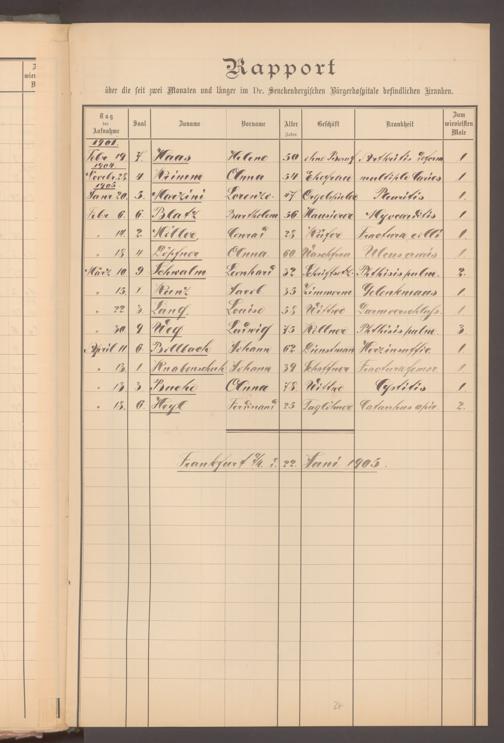 Rapport
über die seit zwei Monaten und länger im Dr. Senckenbergischen Bürgerhospitale befindlichen Kranken.
Tag der Aufnahme Saal Zuname Vorname Alter Jahre Geschäft Krankheit Zum wievielsten Male
1901.
Febr 19. 7. Haas Helene 50 ohne Arthritis deform 1
1904
Novbr. 25 4 Anna 54 Ehefrau multiple Caries 1
1905
Janr 20. 5. Marzini Lorenzo 47 Orgelspieler Pleuritis 1
Febr 6. 6. Blatz Barthelom 56 Hausierer Myocarditis 1
" 14. 2. Miller Conrad 28 Küfer Fractura colli 1
" 15 4 Töpfner Anna 60 Waschfrau Ulcus cruris 1
März 10. 9 Schwalm Leonhard 32 Phthisis pulm. 2.
" 15 1 Kunz Jacob 35 Zimmerm Gelenkmaus 1
" 22 3 Lang Louise 55 Wittwe Darmverschluss. 1
" 30 9 Weg Ludwig 75 Kellner Phthisis pulm. 3
April 11 6 Bellbach Johann 62 Dienstman Herzinsuffic 1
" 13. 1 Knabenschuh Johann 39 Schaffner Fractura femor 1
" 13 3 Anna 78 Wittwe Cystitis 1
" 15. 6. Heyl Ferdinand 25 Taglöhner Catarrhus apic 2.
Frankfurt a/M. d. 22. Juni 1905.